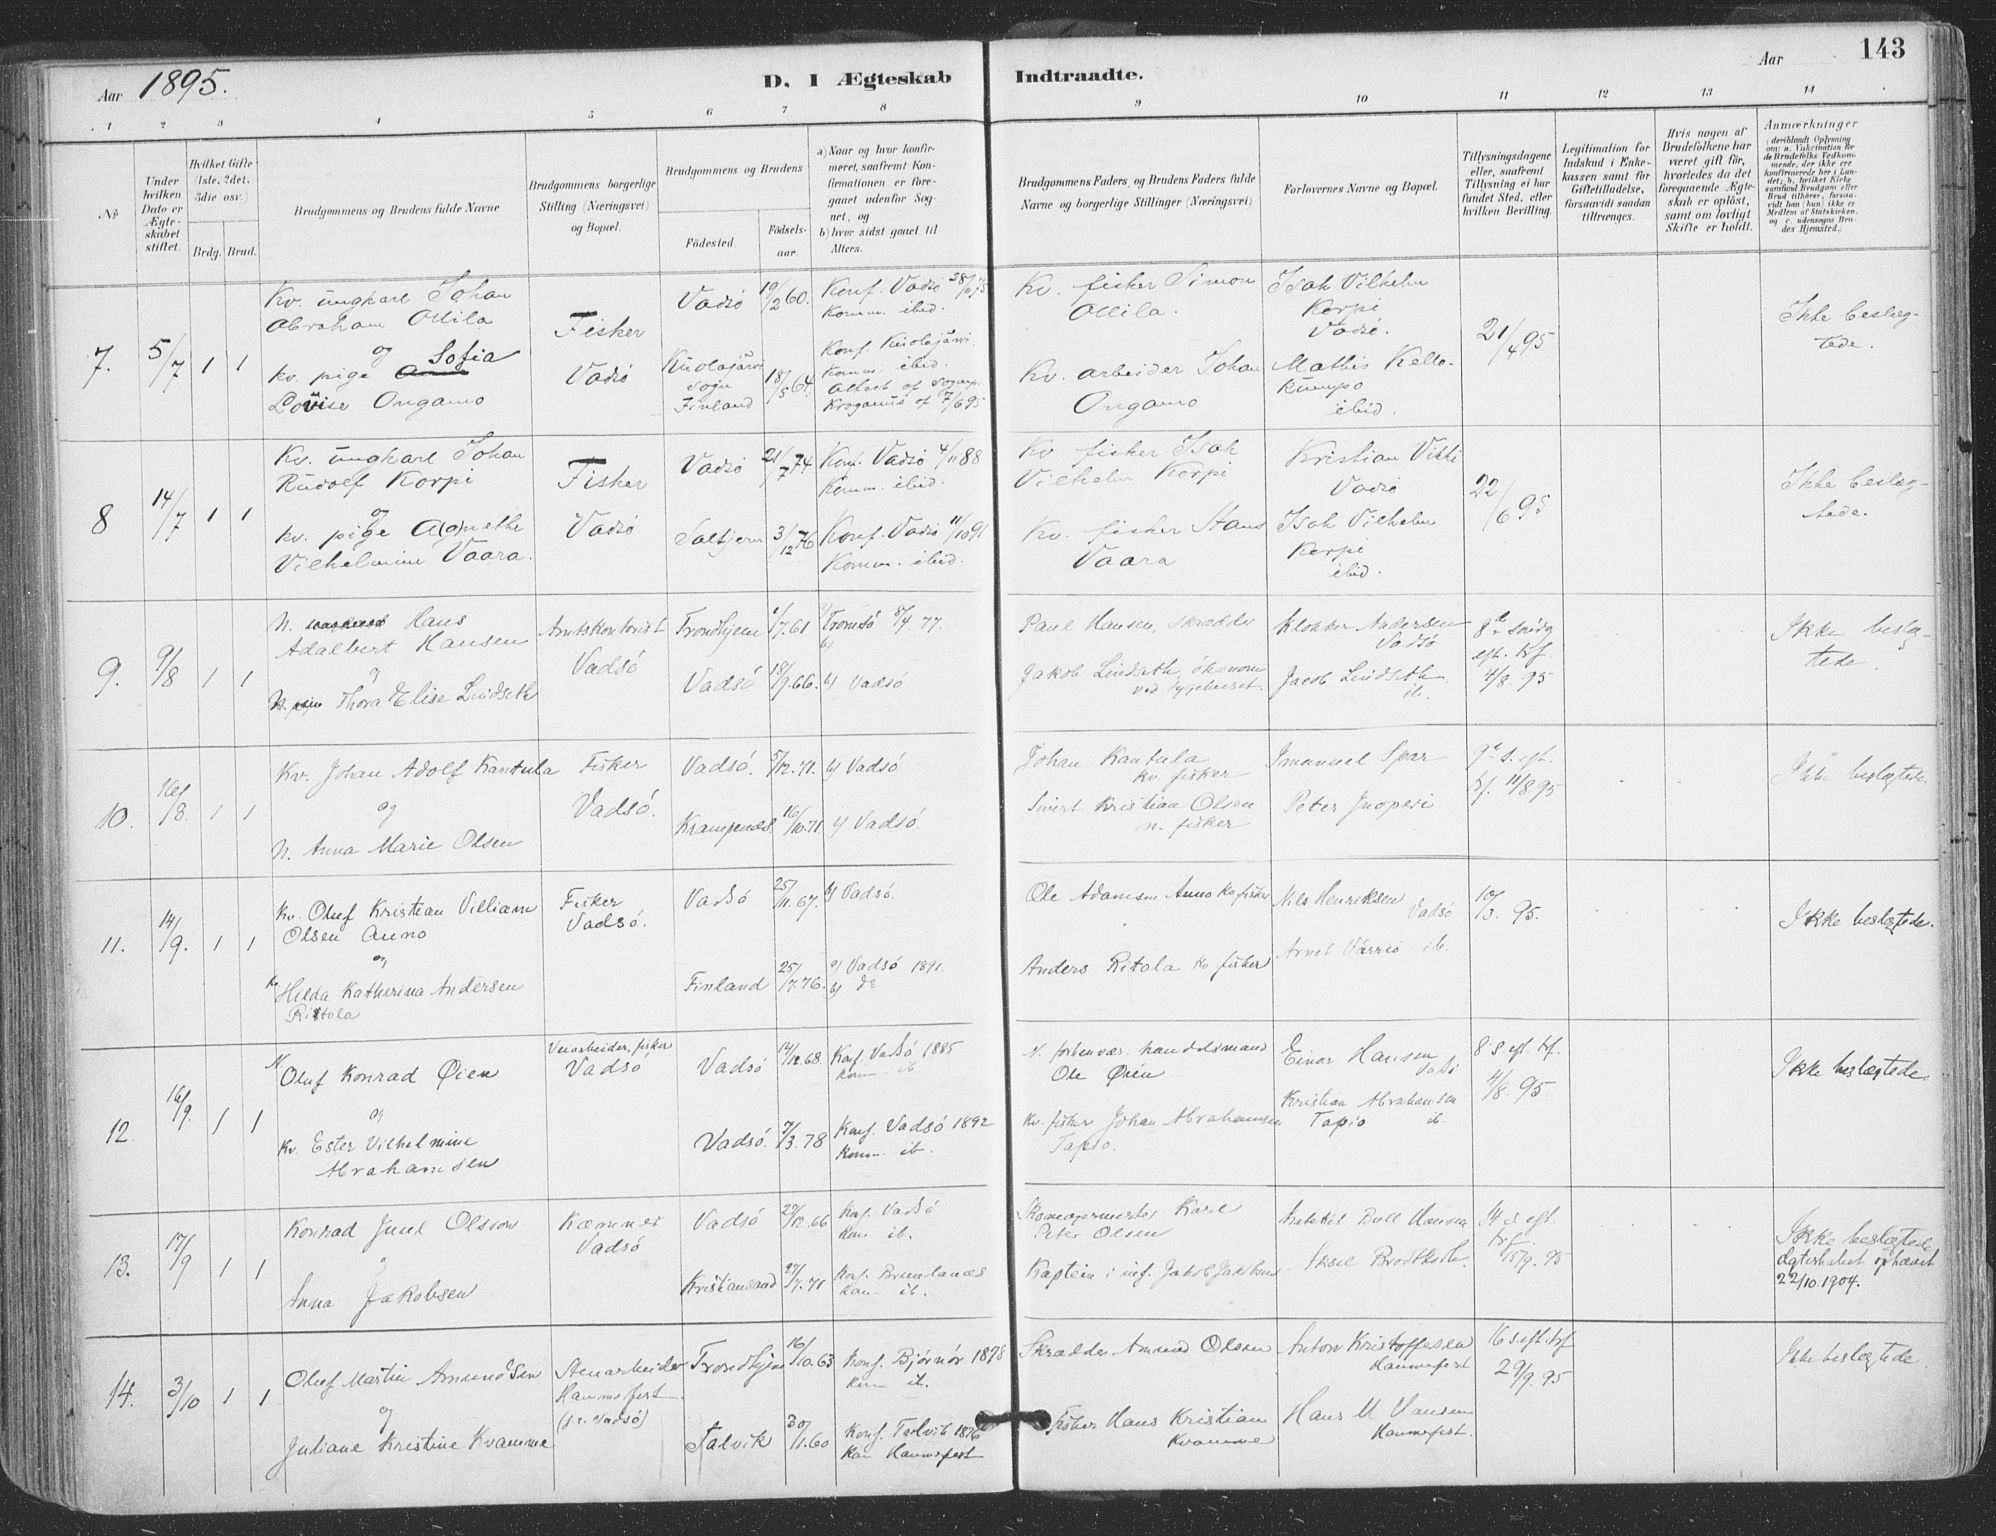 Aar 1895.
D. I Ægteskab
Indtraadte.
Aar
143
1 2 3 4 5 6 7 8
9 10 11 12 13 14
No
Under hvilken Dato er Ægteskabet stiftet.
Hvilket Gifte (1ste, 2det, 3die osv.)
Brdg. Brud.
Brudgommens og Brudens fulde Navne
Brudgommens borgerlige Stilling (Næringsvei) og Bopæl.
Brudgommens og Brudens
Fødested.
Fødselsaar.
a) Naar og hvor konfirmeret, saafremt Konfirmationen er foregaaet udenfor Sognet, og
b) hvor sidst gaaet til Alters.
Brudgommens Faders og Brudens Faders fulde Navne og borgerlige Stillinger (Næringsvei)
Forlovernes Navne og Bopæl.
Tillysningsdagene eller, saafremt Tillysning ei har fundet Sted, efter hvilken Bevilling.
Legitimation for Indskud i Enkekassen samt for Giftetilladelse, forsaavidt saadan tiltrænges.
Hvis nogen af Brudefolkene har været gift før, hvorledes da det foregaaende Ægteskab er opløst, samt om lovligt Skifte er holdt.
Anmærkninger
7. 5/7 1 1
Kv. ungkarl Johan
Abraham Ollila
og
Kv. pige Sofia
Lovise Ongamo
Fisker
Vadsö
Vadsö 19/2 60.
Kuolajärvi
sogn
Finland 18/5 64.
Konf. Vadsö
Komm. ibid.
Konf. Kuolajärvi.
Komm. ibid.
Attest af Sognep.
Kroganus af 7/6 95
Kv. fisker Simon
Ollila.
Kv. arbeider Johan
Ongamo
Isak Vilhelm
Korpi
Vadsö.
Mathis Kello-
kumpo
ibid.
21/4 95
Ikke beslæg-
tede.
8 14/7 1 1
Kv. ungkarl Johan
Rudolf Korpi
og
kv. pige Agnethe
Vilhelmine Vaara.
Fisker
Vadsö
Vadsö 21/7 74
Saltjern 3/12 76
Konf. Vadsö 4/11 88
Komm. ibid.
Konf. Vadsö 11/10 91
Komm. ibid.
Kv. fisker Isak
Vilhelm Korpi
Kv. fisker Hans
Vaara
Kristian Vikki
Vadsö
Isak Vilhelm
Korpi
ibid.
22/6 95
Ikke beslæg-
tede.
9. 9/8 1 1
N. Hans
Adalbert Hansen
og
N. Thora Elise Lindseth
Amtskontorist
Vadsö
Trondhjem 1/7 61
Vadsö 18/9 66.
Tromsö 8/4 77.
b)
b) Vadsö
Paul Hansen, skrædder
Jakob Lindseth, økonom
ved sygehuset.
Klokker Andersen
Vadsö
Jacob Lindseth
ib.
8de söndg
eft. trf.
4/8. 95
Ikke beslæg-
tede.
10. 16/8. 1 1
Kv. Johan Adolf Kantula
og
N. Anna Marie Olsen
Fisker
Vadsö.
Vadsö. 5/12. 71.
Krampenæs 16/10. 71
b) Vadsö
b) Vadsö.
Johan Kantula
kv. fisker
Sivert Kristian Olsen
n. fisker
Imanuel Spar
Peter Juoperi
9de s. eft.
trf. 11/8. 95
Ikke beslægtede.
11. 14/9. 1 1
Kv. Oluf Kristian Villiam
Olsen Anno
og
Kv. Hilda Katherina Andersen
Ritola
Fisker
Vadsö.
Vadsö 25/11. 67.
Finland 25/7. 76.
b) Vadsö.
a) Vadsö 1891.
b) do
Ole Adamsen Anno kv fisker
Anders Ritola kv fisker
Nils Henriksen
Vadsö
Arnet ib.
10/3. 95.
Ikke beslægtede.
12. 16/9. 1 1
N. Oluf Konrad Øien
og
Kv. Ester Vilhelmine
Abrahamsen
Veiarbeider, fisker
Vadsö
Vadsö 14/12. 68.
Vadsö. 7/3. 78
Konf. Vadsö 1885
Kom. ib.
Konf. Vadsö 1892
Komm. ib.
N. forhenvær. handelsmand
Ole Øien
Kv. fisker Johan Abrahamsen
Tapio.
Einar Hansen
Vadsö
Kristian Abrahamsen
Tapio ib.
8 s. eft. trf.
4/8. 95
Ikke beslægtede.
13. 17/9 1 1
Konrad Juul Olsson
Anna Jakobsen
Kæmner
Vadsö
Vadsö 12. 66
Kristiansand 27/7. 71
Konf. Vadsö
Kom ib.
Konf. Brunlanæs
Kom ib.
Skomagermester Karl
Peter Olsen
Kaptein i inf. Jakob Jakobsen
Bull Hansen
Aksel Brodtkorb
14 s. eft.
trf.
15/9. 95
Ikke beslægtede
Ægteskabet ophævet
22/10. 1904.
14. 3/10 1 1
Oluf Martin Amundsen
og
Juliane Kristine Kvamme
Stenarbeider
Hammerfest
Trondhjem 16/10. 63
Talvik 30/1. 60
Konf. Bjørnör 1878
kom ib.
Konf. Talvik 1876
Kom Hammerfest
Skrædder Amund Olsen
Fisker Hans Kristian
Kvamme
Anton Kristoffersen
Hammerfest
Hans M Hansen
Hammerfest.
16 s. eft. trf
29/9. 95
Ikke beslægtede.